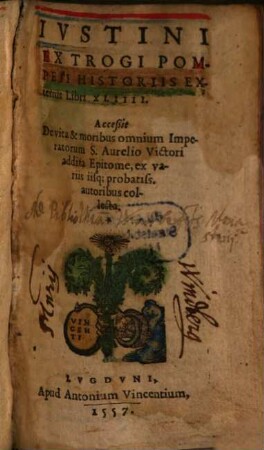 IVSTINI
EX TROGI POM-
PEII HISTORIIS EX-
ternis Libri XLIIII.
Accessit
De vita & moribus omnium Impe-
ratorum S. Aurelio Victori
addita Epitome, ex va-
riis iisq; probatiss.
autoribus col-
lecta.
VIN
CEN
TI
LVGDVNI,
Apud Antonium Vincentium,
1557.